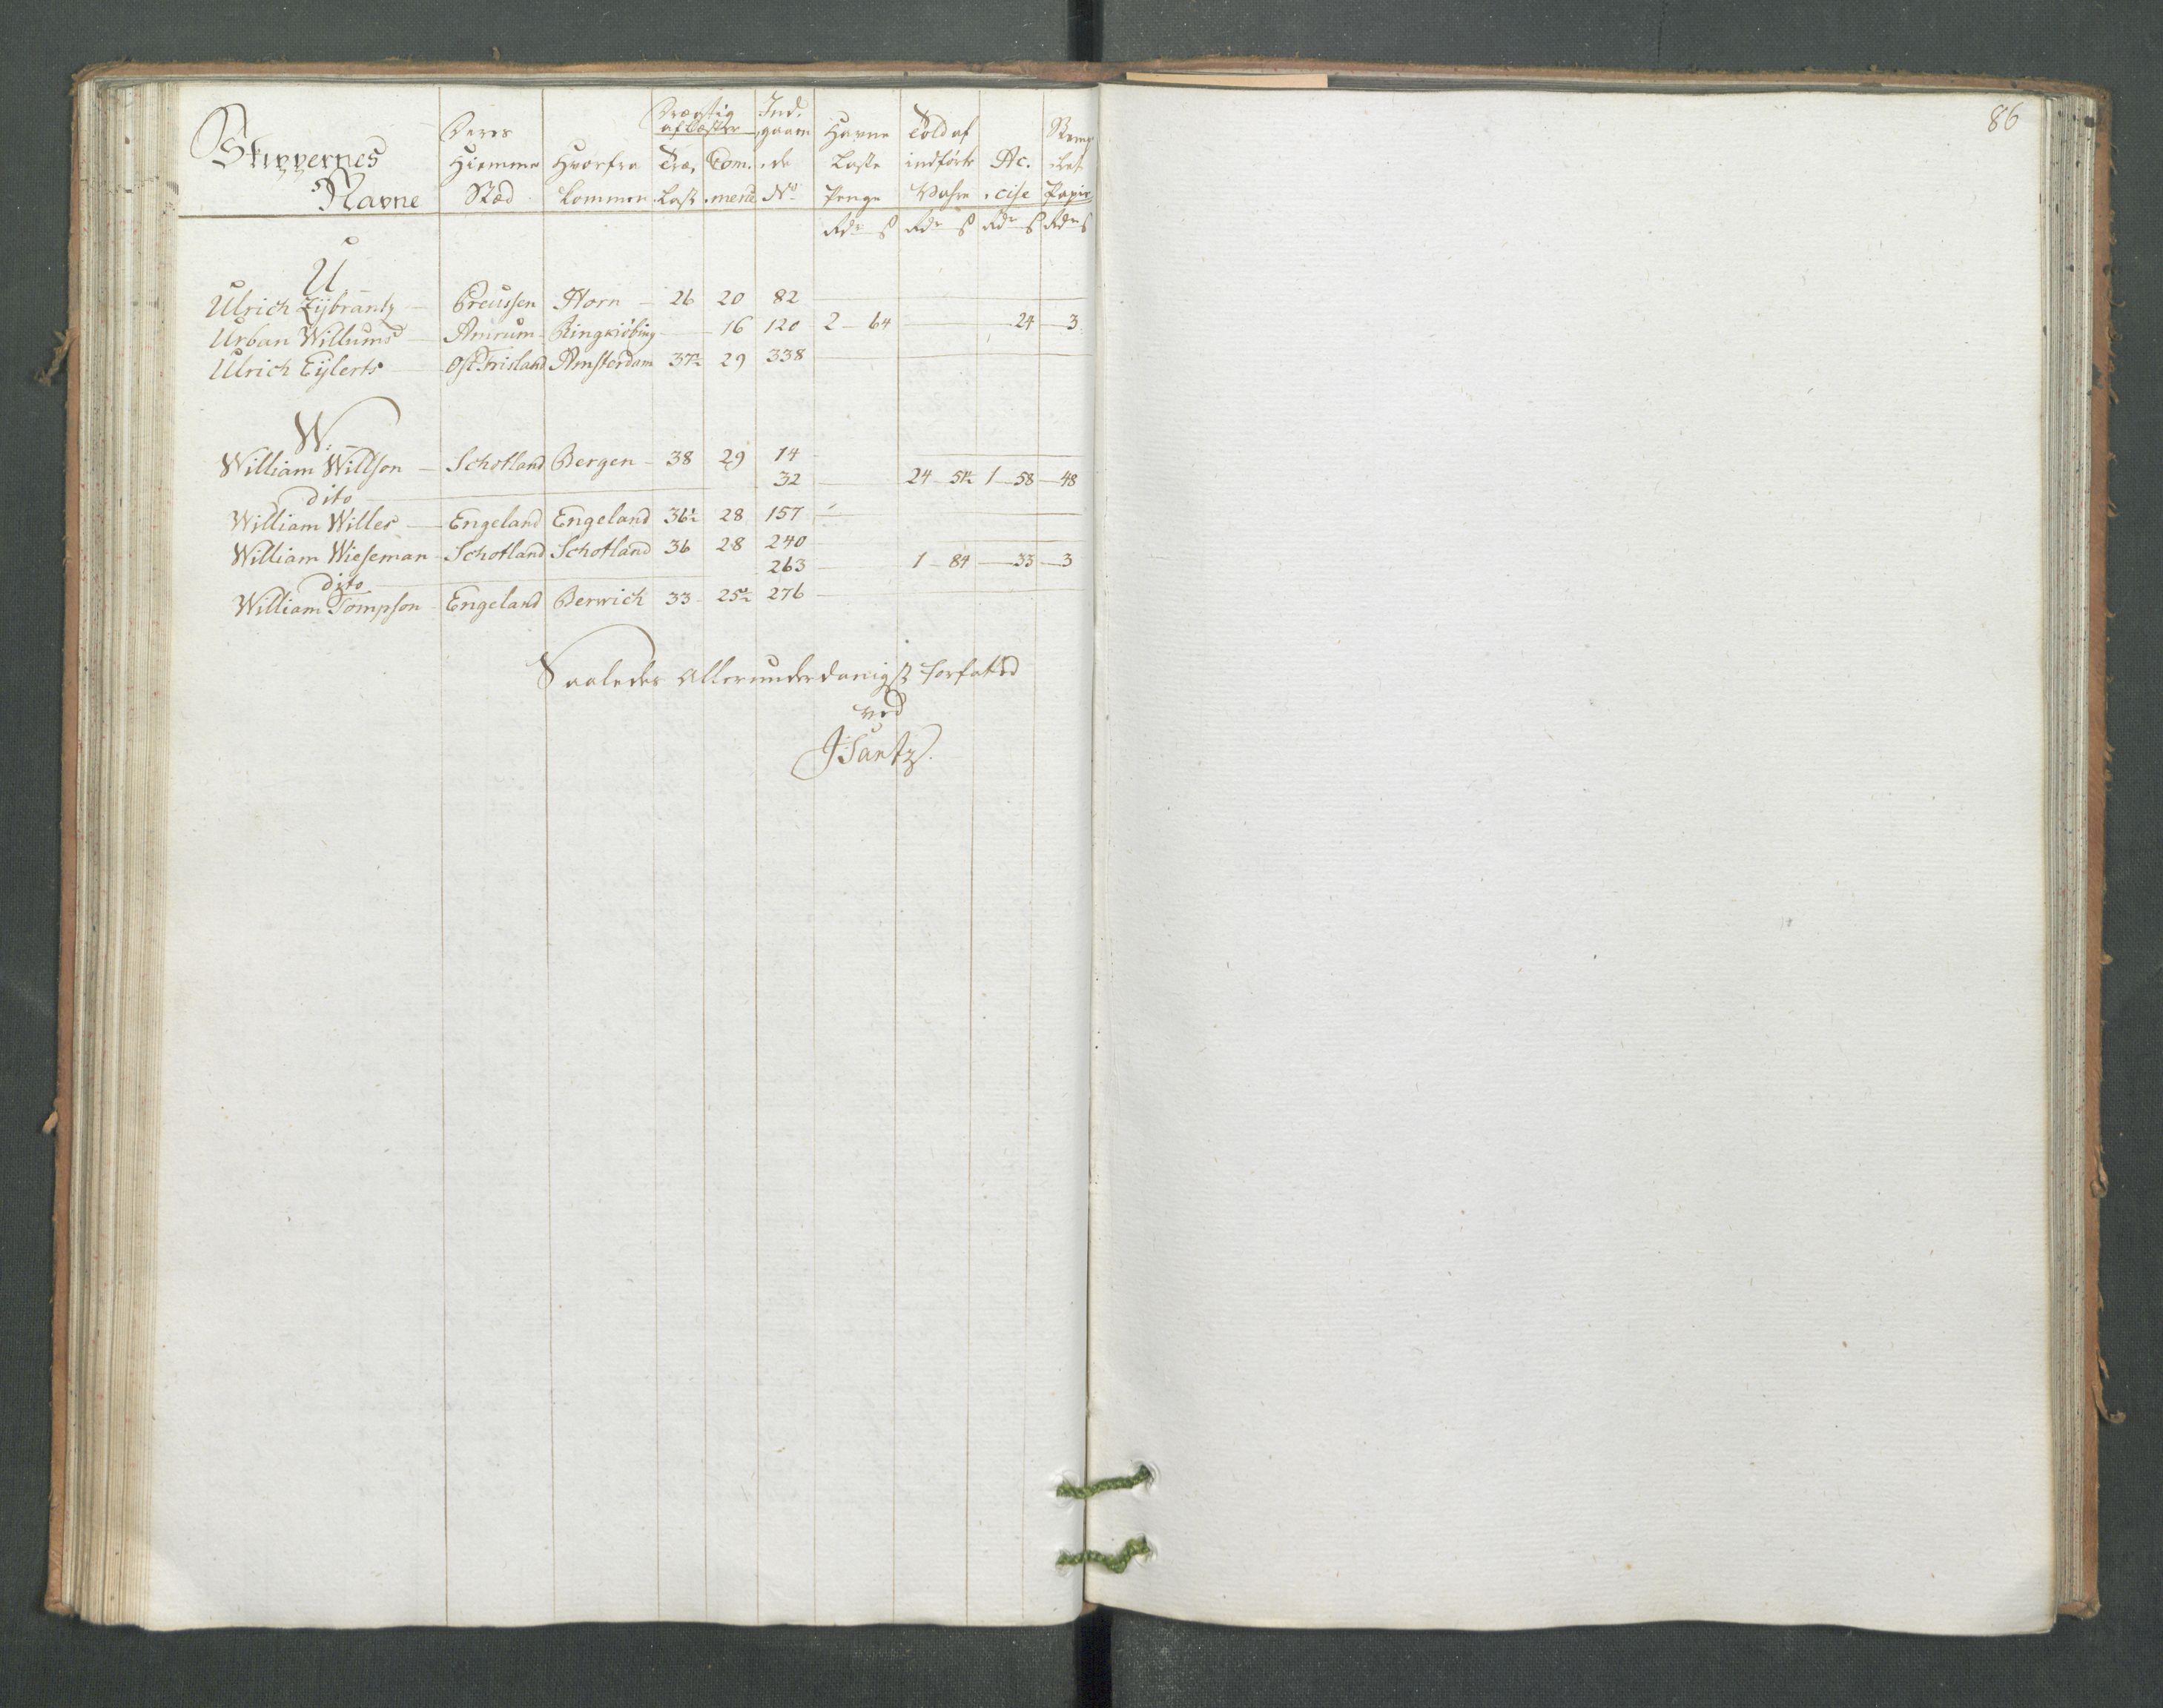 86
Skippernes Navne | Deres Hiemme Stæd | Hvorfra kommen | Drægtig af Læster Træ, Last | Com. merte | Ind. gaaen, de No | Havne Laste Penge | Told af indførte Vahre | Ac. cise | Stemp let Papir
Rdr ß | Rdr ß | Rdr ß | Rdr ß
U
Ulrich Zijbrantz — Preussen Horn — 26 20 82
Urban Willums — Amrum Ringkiøbing — 16 120 2 — 64 24 — 3
Ulrich Eijlerts Ost Frisland Amsterdam 37½ 29 338
W.
William Willson — Schotland Bergen — 38 29 14
dito 32 24 — 5½ 1 — 58 — 48
William Willes — Engeland Engeland 36½ 28 157
William Wieseman — Schotland Schotland 36 28 240
dito 263 1 — 84 — 33 — 3
William Tompson — Engeland Berwick 33 25½ 276
Saaledes allerunderdanigst forfatted
ved